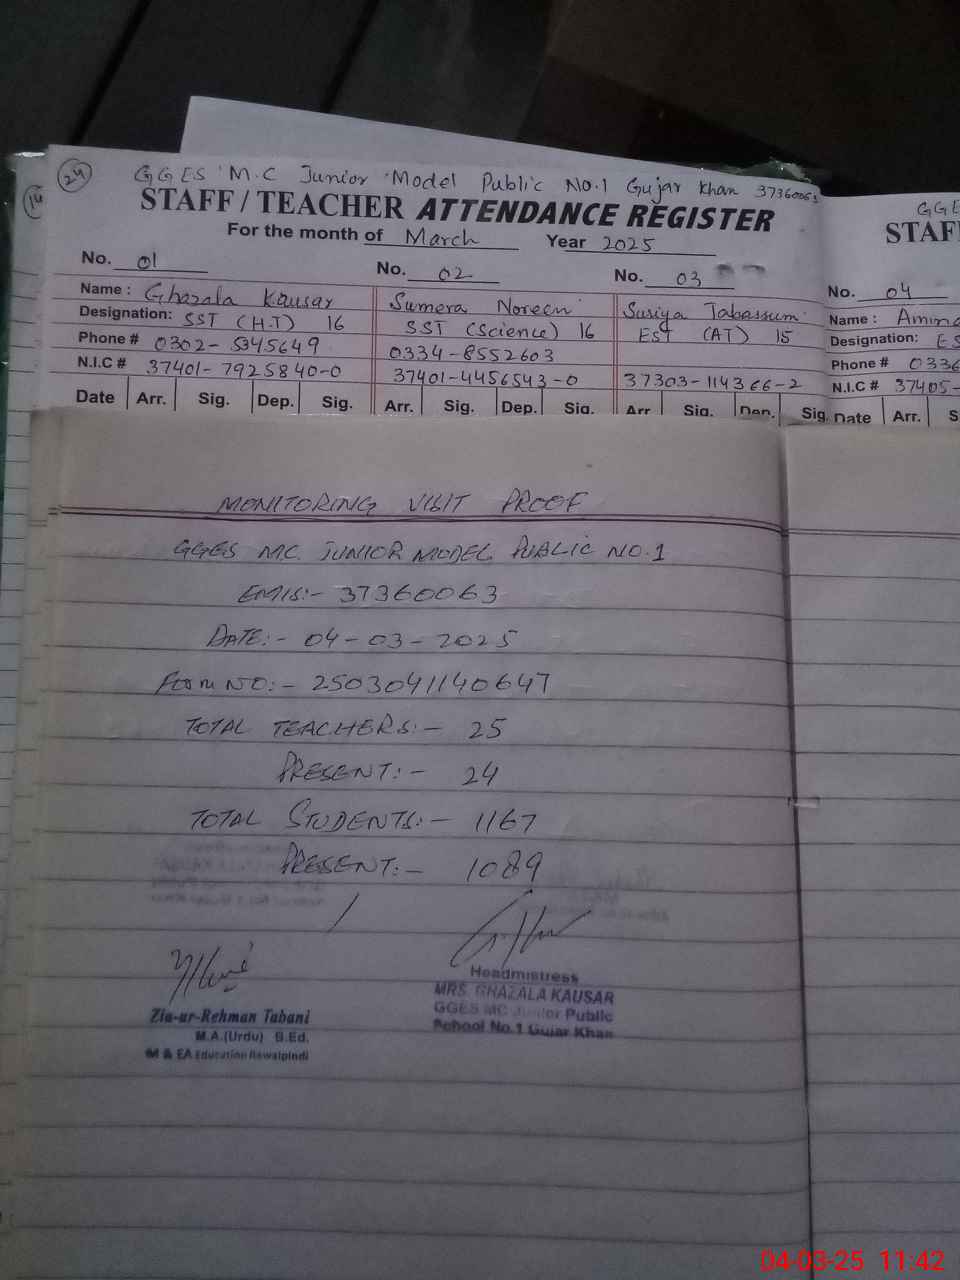 24
GGES M.C Junior Model Public No.1 Gujar Khan 37360063
14
STAFF / TEACHER ATTENDANCE REGISTER
For the month of March Year 2025
No. 01 No. 02 No. 03
Name : Ghazala Kausar Sumera Noreen Susiya Tabassum
Designation: SST (H.T) 16 SST (Science) 16 EST (AT) 15
Phone # 0302-5345649 0334-8552603
N.I.C # 37401-7925840-0 37401-4456543-0 37303-114366-2
Date Arr. Sig. Dep. Sig. Arr. Sig. Dep. Sig. Arr Sig. Dep. Sig.
GGE
STAF
No. 04
Name : Amina
Designation: ES
Phone # 0336
N.I.C # 37405-
Date Arr. S
MONITORING VISIT PROOF
GGES MC JUNIOR MODEL PUBLIC NO.1
EMIS:- 37360063
DATE:- 04-03-2025
Form NO:- 2503041140647
TOTAL TEACHERS:- 25
PRESENT:- 24
TOTAL STUDENTS:- 1167
PRESENT:- 1089
Zia-ur-Rehman Tabani
M.A.(Urdu) B.Ed.
M & EA Education Rawalpindi
Headmistress
MRS. GHAZALA KAUSAR
GGES MC Junior Public
School No.1 Gujar Khan
04-03-25 11:42